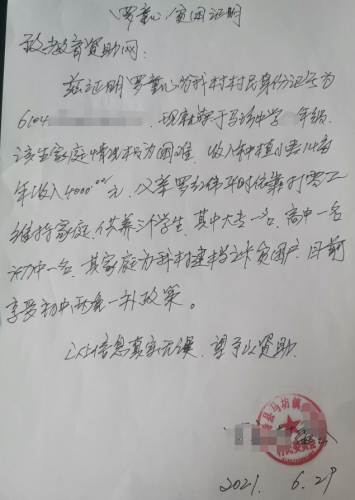 罗董心贫困证明
致教育资助网:
兹证明罗董心为我村村民身份证号为
6104 现就读于马坊中学 年级
该生家庭情况极为困难,收入种植小麦
年收入4000.00元,父亲罗 伟平时依靠打零工
维持家庭,供养三个学生,其中大专一名,高中一名
初中一名,其家庭为我村建档立卡贫困户,目前
享受初中两免一补政策。
以上信息真实无误,望予以资助.
县马坊镇
村民委员会
2021. 6. 29